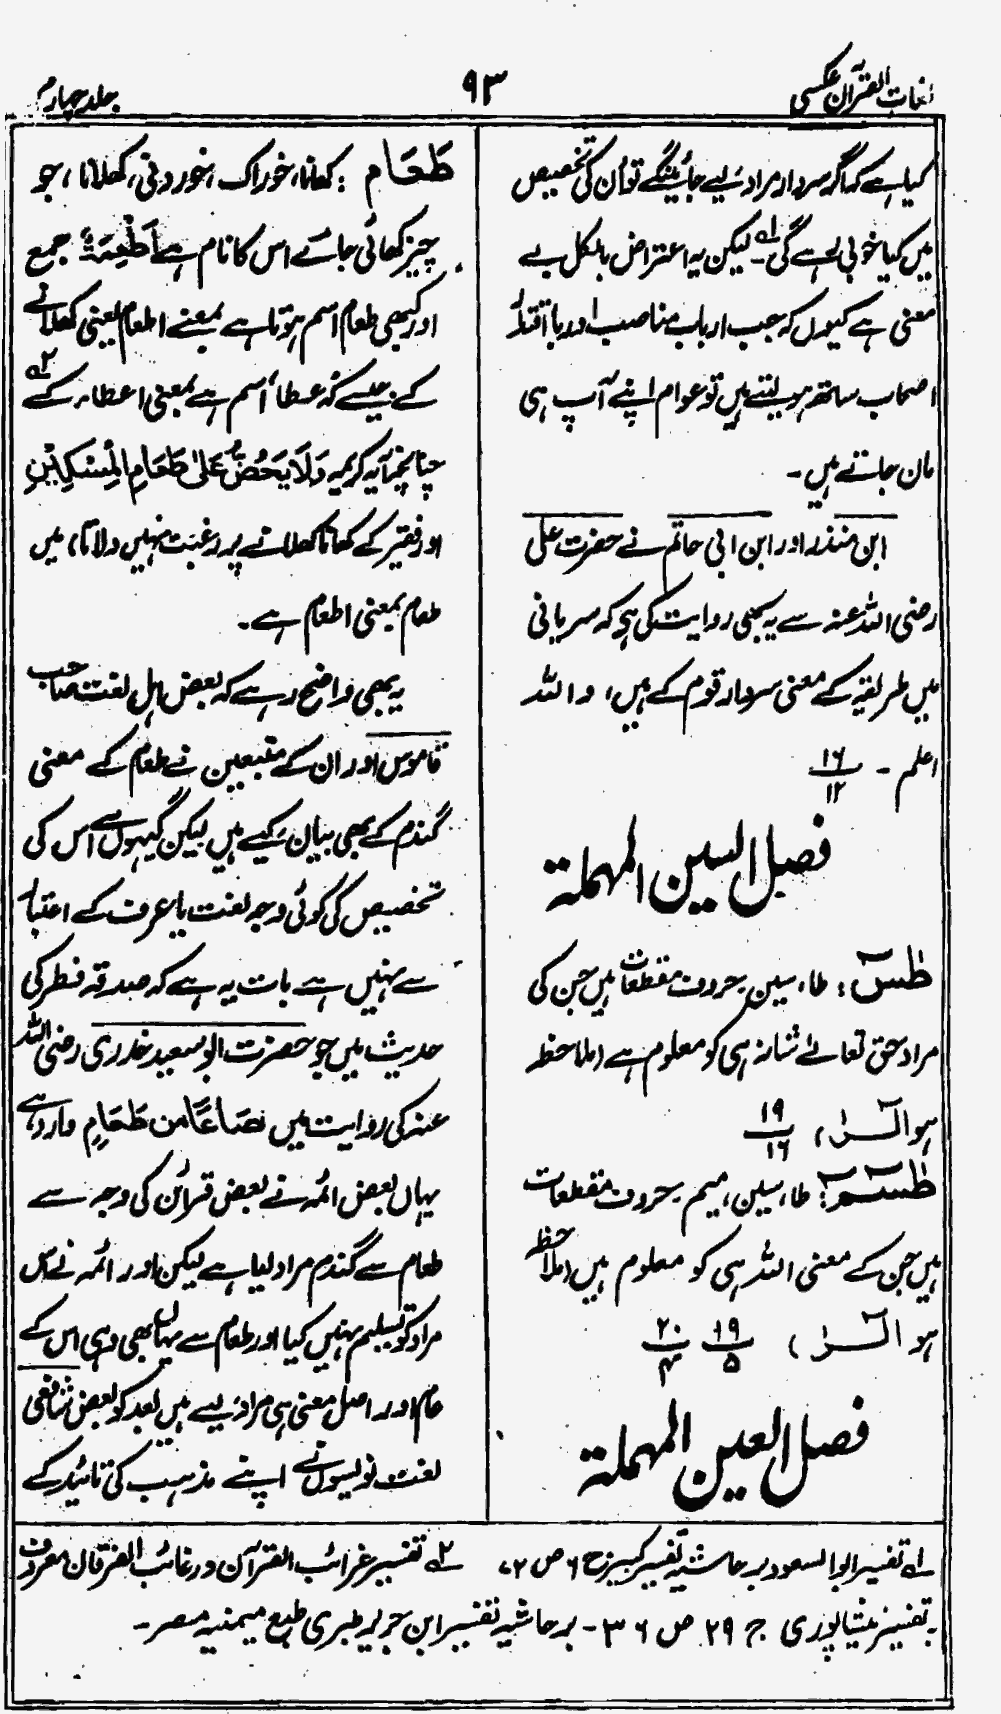 لغات القرآن عکسی
۹۳
جلد چہارم
کیا ہے کہ اگر سردار مراد لیے جائینگے تو ان کی تخصیص
میں کیا خوبی ہے گی ۱؎ لیکن یہ اعتراض بالکل بے
معنی ہے کیوں کہ جب ارباب مناصب اور با اقتدار
اصحاب ساتھ ہو لیتے ہیں تو عوام اپنے آپ ہی
مان جاتے ہیں۔
ابن منذر اور ابن ابی حاتم نے حضرت علی
رضی اللہ عنہ سے یہ بھی روایت کی ہے کہ سریانی
میں طریقہ کے معنی سردار قوم کے ہیں، واللہ
اعلم۔ ۱۶/۱۲
فصل السین المہملۃ
طٰسٓ: طا، سین، حروف مقطعات ہیں جن کی
مراد حق تعالےٰ شانہ ہی کو معلوم ہے (ملاحظہ
ہو الٓرٰ) ۱۹/۱۶
طٰسٓمّٓ: طا، سین، میم۔ حروف مقطعات
ہیں جن کے معنی اللہ ہی کو معلوم ہیں (ملاحظہ
ہو الٓرٰ) ۱۹/۵ ۲۰/۴
فصل العین المہملۃ
طَعَام: کھانا، خوراک، خوردنی، کھلانا، جو
چیز کھائی جائے اس کا نام ہے اَطْعِمَۃٌ جمع
اور کبھی طعام اسم ہوتا ہے بمعنے اطعام یعنی کھلانے
کے جیسے کہ عطاء اسم ہے بمعنی اعطاء کے ۲؎
چنانچہ آیہ کریمہ وَلَا یَحُضُّ عَلٰی طَعَامِ الْمِسْکِیْنِ
اور فقیر کے کھانا کھلانے پر رغبت نہیں دلاتا، میں
طعام بمعنی اطعام ہے۔
یہ بھی واضح رہے کہ بعض اہل لغت صاحب
قاموس اور ان کے متبعین نے طعام کے معنی
گندم کے بھی بیان کیے ہیں لیکن گیہوں سے اس کی
تخصیص کی کوئی وجہ لغت یا عرف کے اعتبار
سے نہیں ہے بات یہ ہے کہ صدقہ فطر کی
حدیث میں جو حضرت ابو سعید خدری رضی اللہ
عنہ کی روایت میں صَاعًا مِن طَعَامٍ وارد ہے
یہاں بعض ائمہ نے بعض قرائن کی وجہ سے
طعام سے گندم مراد لیا ہے لیکن اور ائمہ نے اس
مراد کو تسلیم نہیں کیا اور طعام سے یہاں بھی وہی اس کے
عام اور اصل معنی ہی مراد لیے ہیں بعد کو بعض شافعی
لغت نویسوں نے اپنے مذہب کی تائید کے
۱؎ تفسیر ابو السعود بر حاشیہ تفسیر کبیر ج ۶ ص ۷۲ ۲؎ تفسیر غرائب القرآن و رغائب الفرقان معروف
بہ تفسیر نیشاپوری ج ۲۹ ص ۳۶۔ بر حاشیہ تفسیر ابن جریر طبری طبع میمنیہ مصر۔